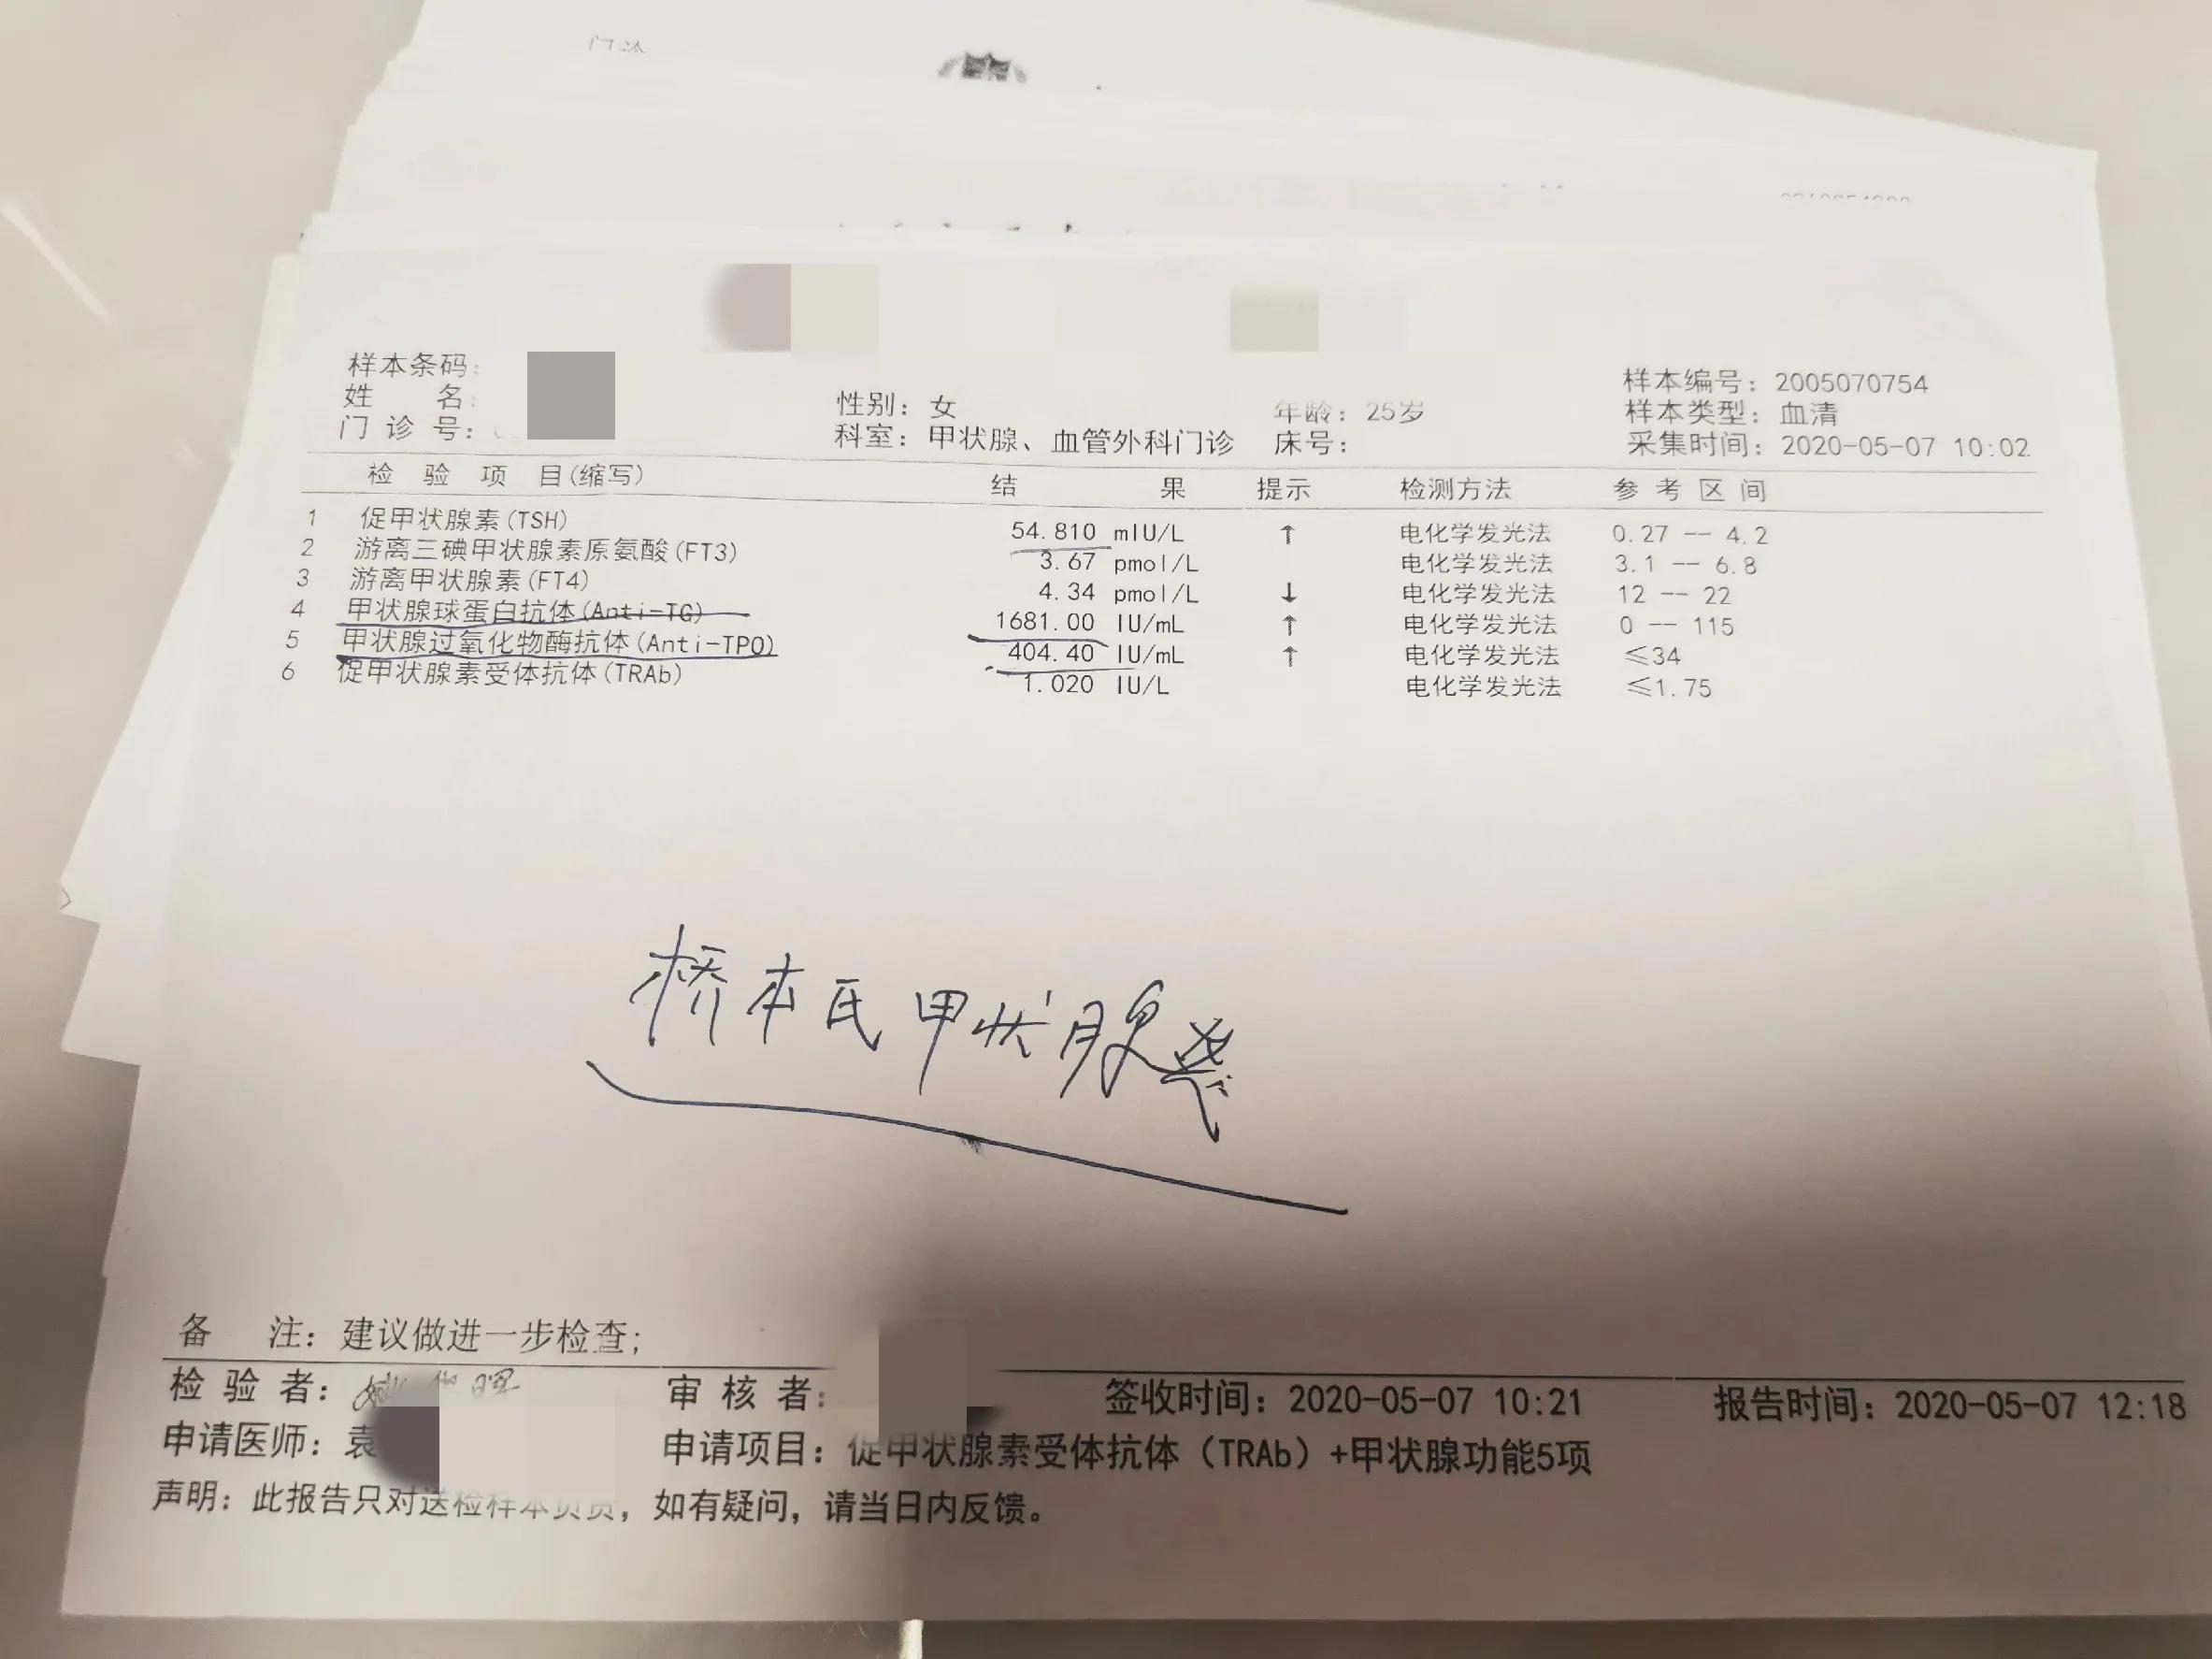 门诊
样本条码:
样本编号: 2005070754
姓 名:
性别: 女
年龄: 25岁
样本类型: 血清
门 诊 号:
科室: 甲状腺、血管外科门诊
床号:
采集时间: 2020-05-07 10:02
检 验 项 目(缩写) 结 果 提示 检测方法 参 考 区 间
1 促甲状腺素(TSH) 54.810 mIU/L ↑ 电化学发光法 0.27 -- 4.2
2 游离三碘甲状腺素原氨酸(FT3) 3.67 pmol/L 电化学发光法 3.1 -- 6.8
3 游离甲状腺素(FT4) 4.34 pmol/L ↓ 电化学发光法 12 -- 22
4 甲状腺球蛋白抗体(Anti-TG) 1681.00 IU/mL ↑ 电化学发光法 0 -- 115
5 甲状腺过氧化物酶抗体(Anti-TPO) 404.40 IU/mL ↑ 电化学发光法 ≤34
6 促甲状腺素受体抗体(TRAb) 1.020 IU/L 电化学发光法 ≤1.75
桥本氏甲状腺炎
备 注: 建议做进一步检查;
检 验 者:
审 核 者:
签收时间: 2020-05-07 10:21
报告时间: 2020-05-07 12:18
申请医师: 袁
申请项目: 促甲状腺素受体抗体（TRAb）+甲状腺功能5项
声明: 此报告只对送检样本负责, 如有疑问, 请当日内反馈。